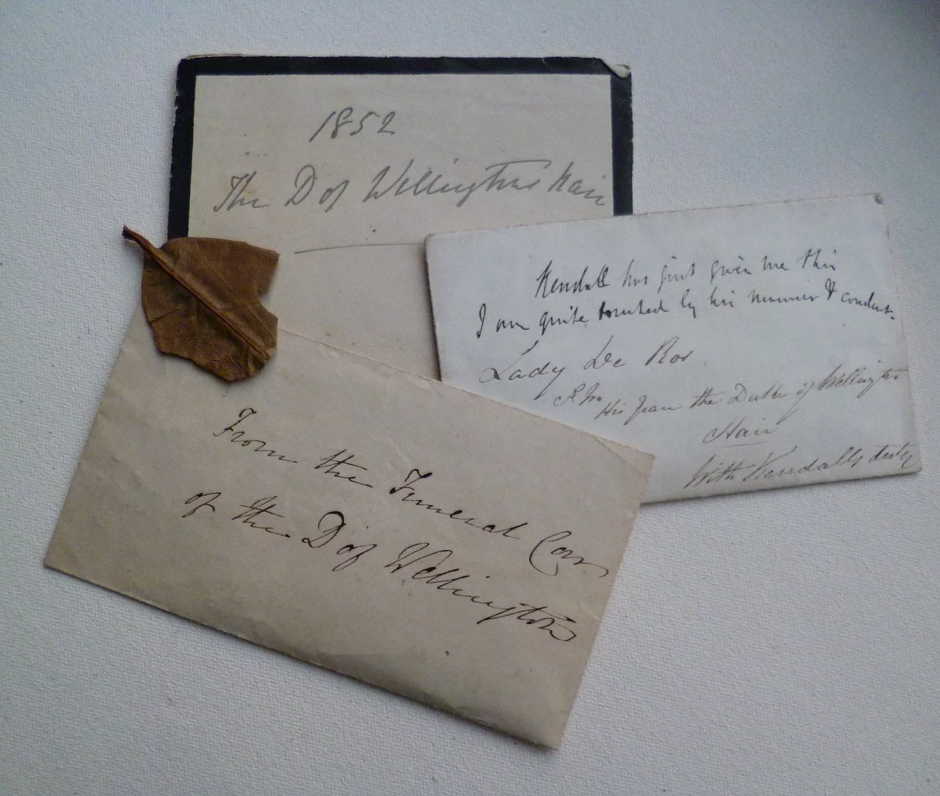 1852
The D of Wellingtons Hair
Kendall has just given me this
I am quite touched by his manner & conduct.
Lady De Ros
His Grace the Duke of Wellington
Hair
With Kendalls duty
From the Funeral Car
of the D of Wellington